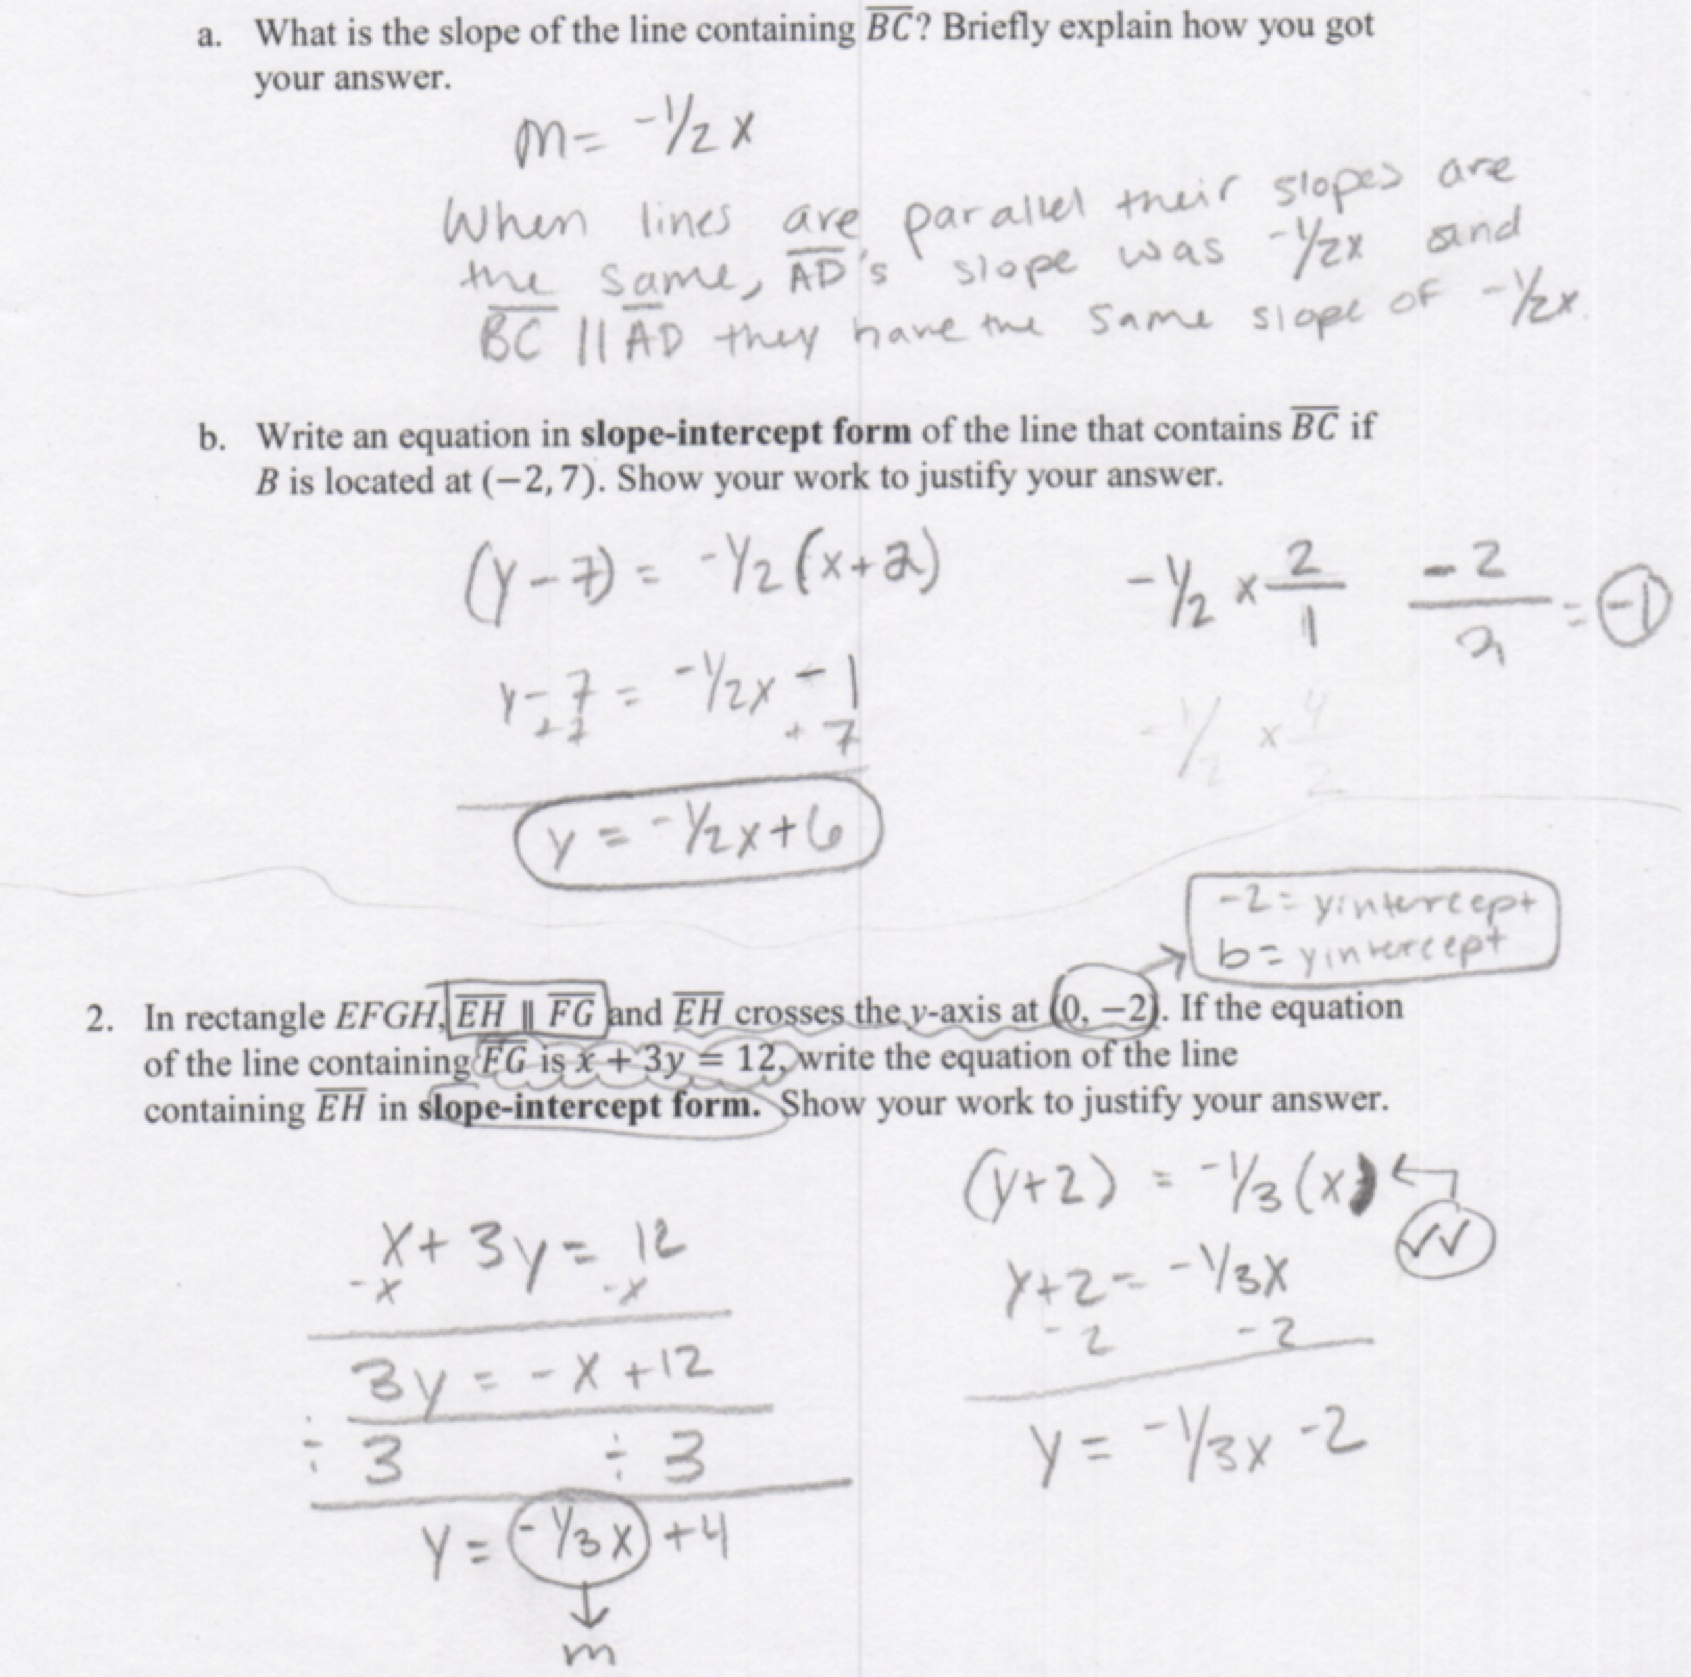 a. What is the slope of the line containing BC? Briefly explain how you got
your answer.
m = -1/2 x
When lines are parallel their slopes are
the same, AD's slope was -1/2x and
BC || AD they have the same slope of -1/2x.
b. Write an equation in slope-intercept form of the line that contains BC if
B is located at (−2, 7). Show your work to justify your answer.
(y - 7) = -1/2 (x+2)
y - 7 = -1/2x - 1
+7 +7
y = -1/2x+6
-1/2 x 2/1 -2/2 = -1
-1/2 x 4/2
-2 = yintercept
b = yintercept
2. In rectangle EFGH, EH ∥ FG and EH crosses the y-axis at (0, −2). If the equation
of the line containing FG is x + 3y = 12, write the equation of the line
containing EH in slope-intercept form. Show your work to justify your answer.
x + 3y = 12
-x -x
3y = -x +12
÷ 3 ÷ 3
y = -1/3x +4
m
(y+2) = -1/3 (x)
y+2 = -1/3x
-2 -2
y = -1/3x -2